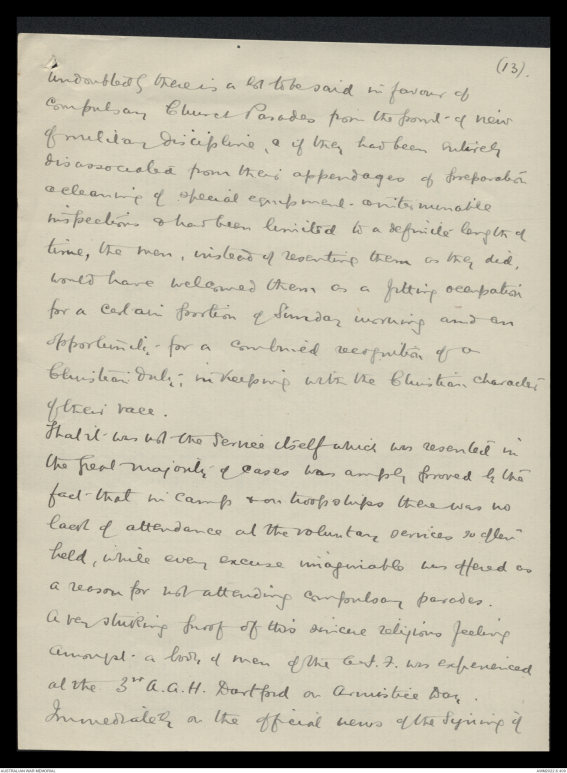 (13).
Undoubtedly there is a lot to be said in favour of
Compulsory Church Parades from the point of view
of military discipline, & if they had been entirely
disassociated from their appendages of preparation
& cleaning of special equipment interminable
inspections & had been limited to a definite length of
time, the men, instead of resenting them as they did,
would have welcomed them as a fitting occupation
for a certain portion of Sunday morning and an
opportunity for a combined recognition of a
Christian Duty, in keeping with the Christian character
of their race.
That it was not the Service itself which was resented in
the great majority of cases was amply proved by the
fact that in camps & on troopships there was no
lack of attendance at the voluntary services so often
held, while every excuse imaginable was offered as
a reason for not attending compulsory parades.
A very striking proof of this sincere religious feeling
amongst a body of men of the A.I.F. was experienced
at the 3rd A.A.H. Dartford on Armistice Day.
Immediately on the official news of the signing of
AUSTRALIAN WAR MEMORIAL